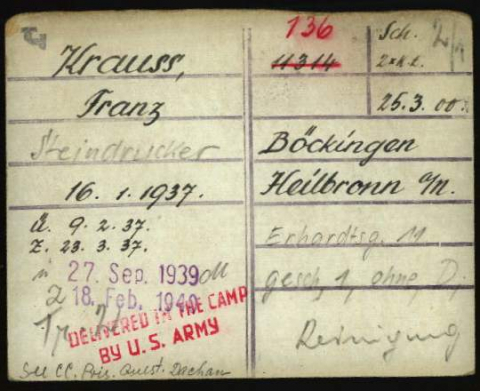 Krauss,
Franz
Steindrucker
16. 1. 1937.
Ü. 9. 2. 37.
Z. 23. 3. 37.
n 27. Sep. 1939 M
2 18. Feb. 1940
DELIVERED IN THE CAMP
BY U.S. ARMY
See CC. Pris. Quest. Dachau
136
11314
Sch.
2xkl.
25.3.00.
Böckingen
Heilbronn a/N.
Erhardtsg. 11
gesch, 1, ohne, D,
Reinigung